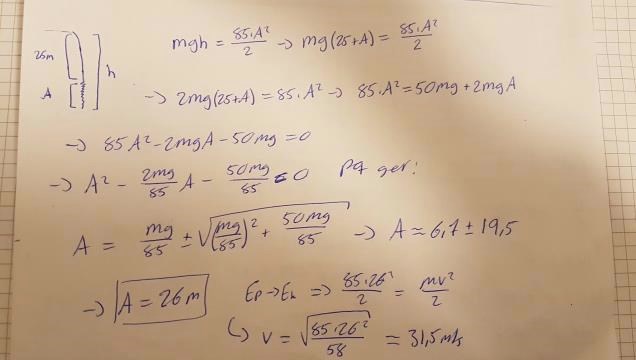 25m
A
h
mgh = 85·A²/2 → mg(25+A) = 85·A²/2
→ 2mg(25+A) = 85·A² → 85·A² = 50mg + 2mgA
→ 85A² - 2mgA - 50mg = 0
→ A² - 2mg/85 A - 50mg/85 = 0 PQ ger:
A = mg/85 ± √((mg/85)² + 50mg/85) → A ≈ 6,7 ± 19,5
→ A = 26m Ep→Ek => 85·26²/2 = mv²/2
↳ v = √(85·26²/58) ≈ 31,5 m/s